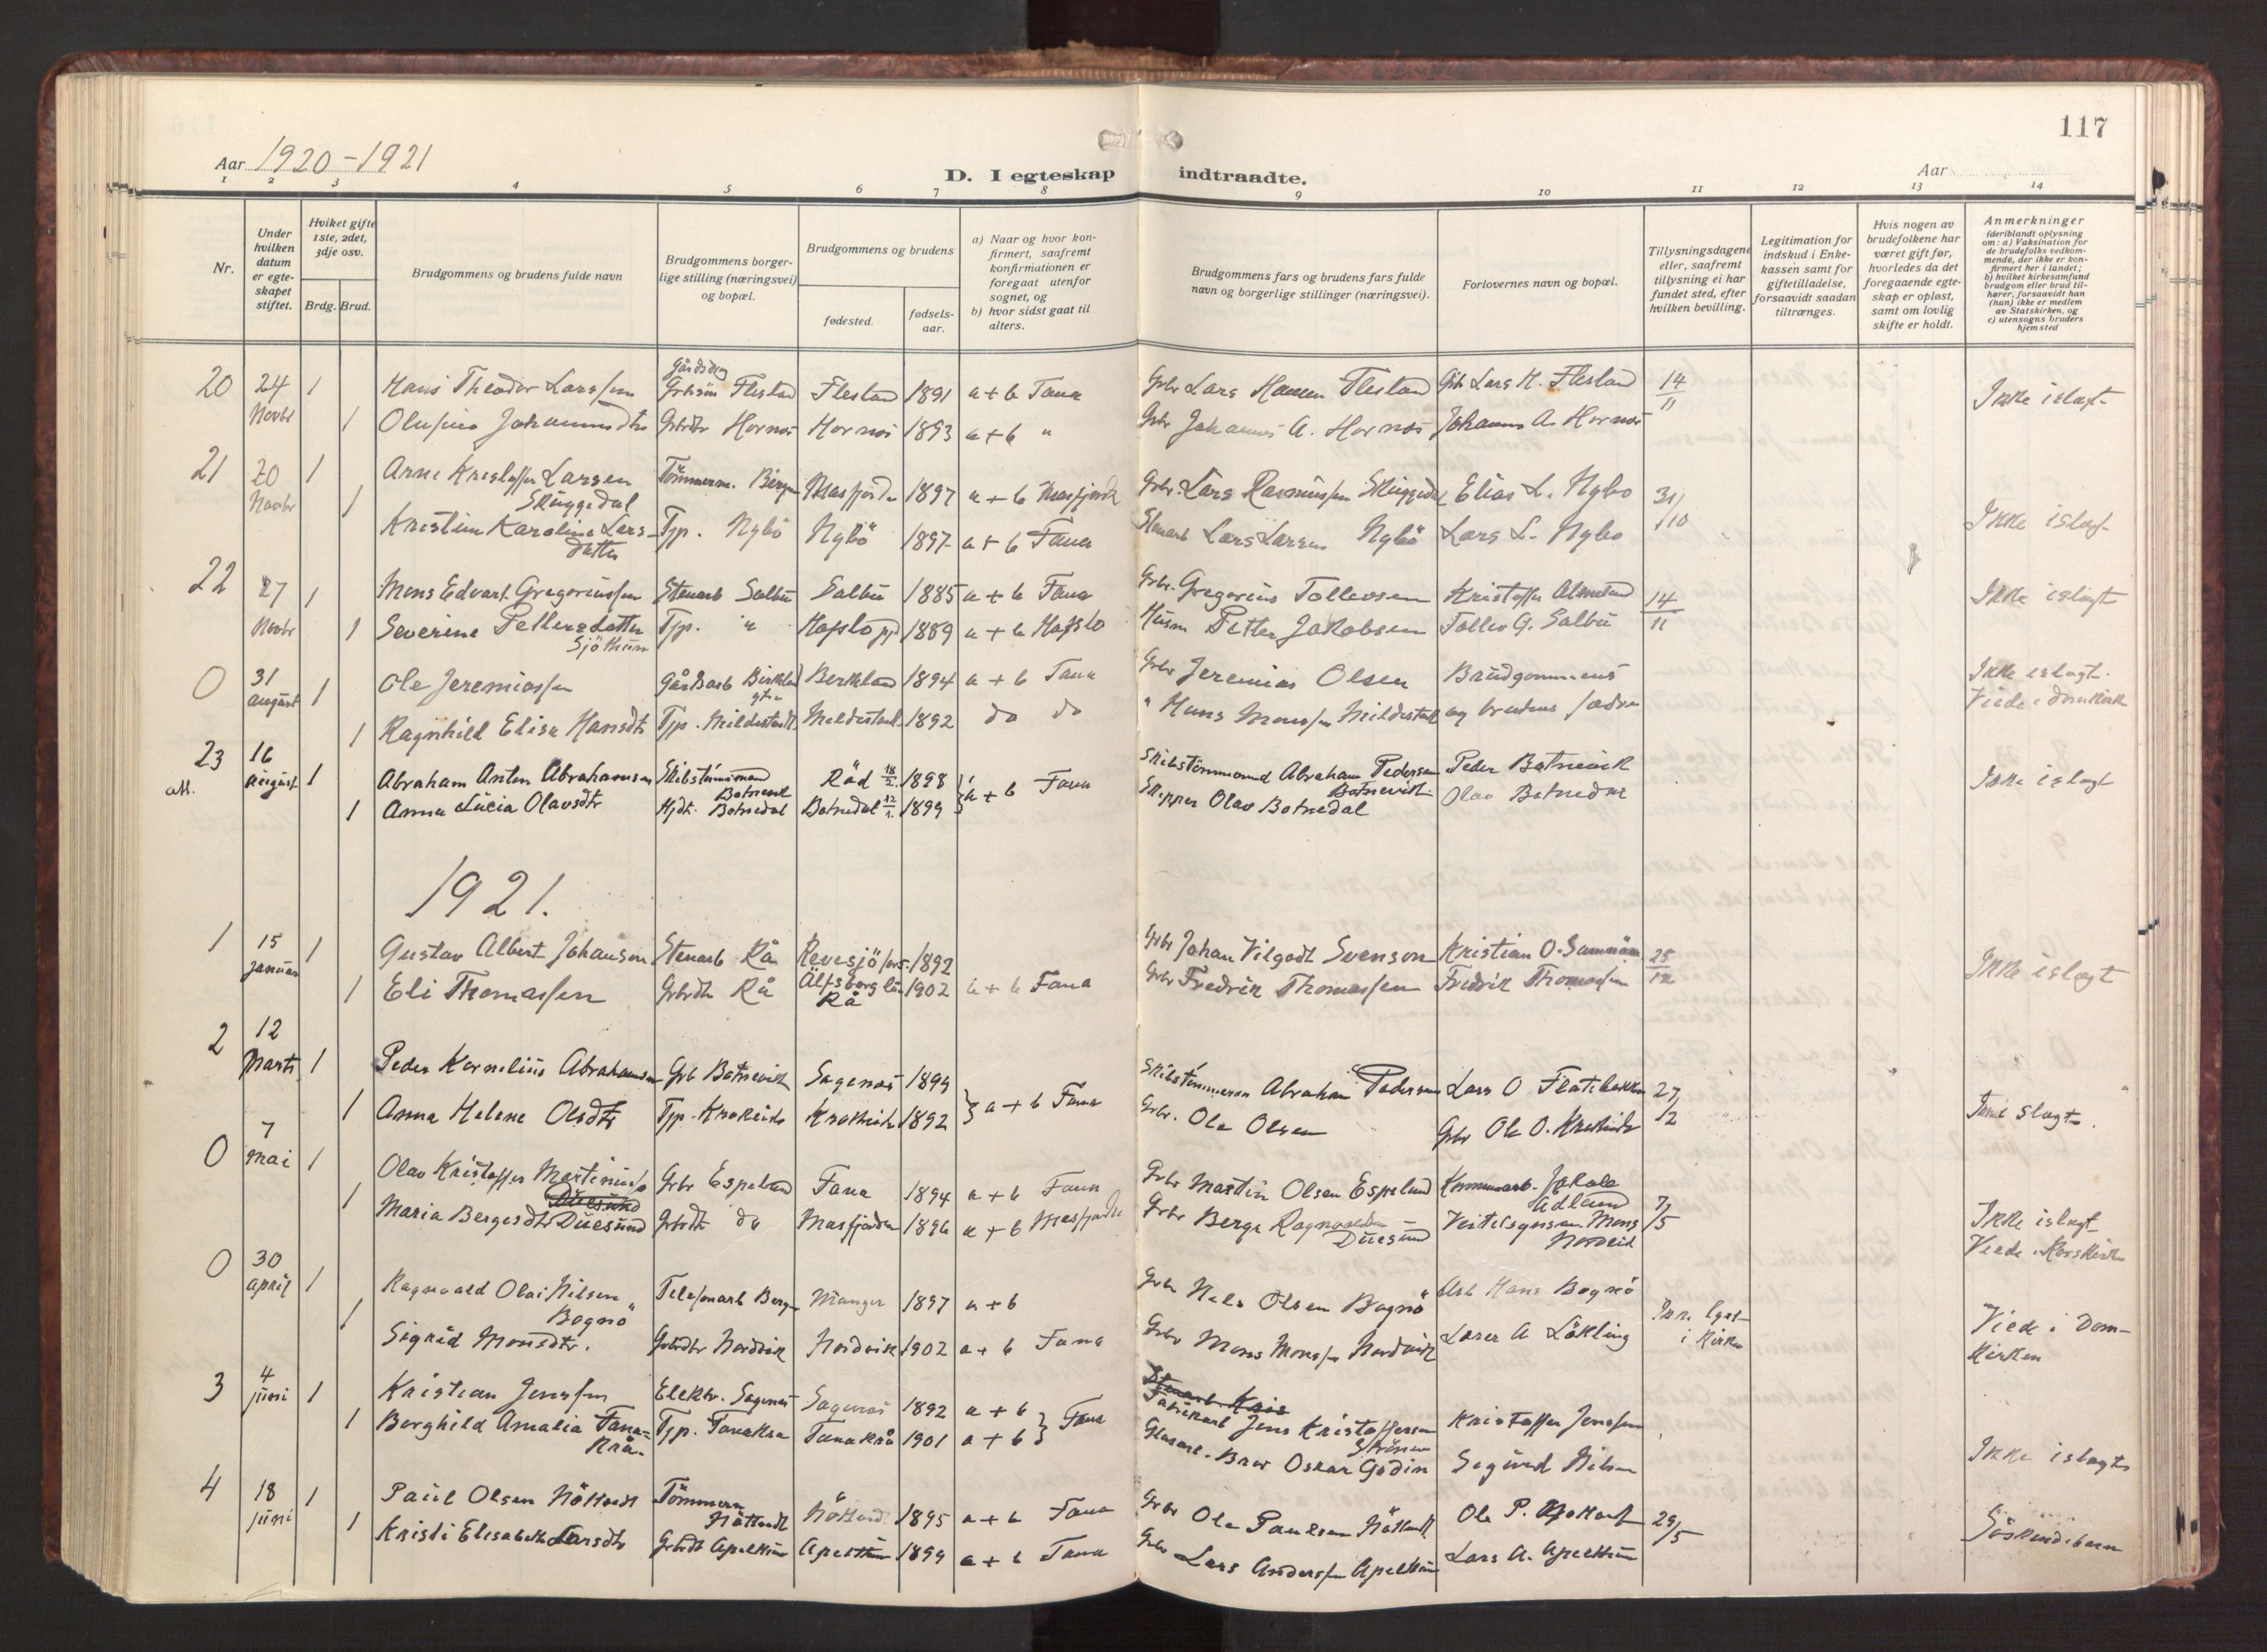 117
Aar 1920-1921
D. I egteskap indtraadte.
Aar
1 2 3 4 5 6 7 8 9 10 11 12 13 14
Nr.
Under hvilken datum er egteskapet stiftet.
Hvilket gifte 1ste, 2det, 3dje osv.
Brdg. Brud.
Brudgommens og brudens fulde navn
Brudgommens borgerlige stilling (næringsvei) og bopæl.
Brudgommens og brudens
fødested.
fødselsaar.
a) Naar og hvor konfirmert, saafremt konfirmationen er foregaat utenfor sognet, og
b) hvor sidst gaat til alters.
Brudgommens fars og brudens fars fulde navn og borgerlige stillinger (næringsvei).
Forlovernes navn og bopæl.
Tillysningsdagene eller, saafremt tillysning ei har fundet sted, efter hvilken bevilling.
Legitimation for indskud i Enkekassen samt for giftetilladelse, forsaavidt saadan tiltrænges.
Hvis nogen av brudefolkene har været gift før, hvorledes da det foregaaende egteskap er opløst, samt om lovlig skifte er holdt.
Anmerkninger (deriblandt oplysning om: a) Vaksination for de brudefolks vedkommende, der ikke er konfirmert her i landet; b) hvilket kirkesamfund brudgom eller brud tilhører, forsaavidt han (hun) ikke er medlem av Statskirken, og c) utensogns bruders hjemsted
20 24 Novbr 1 Hans Theodor Larssen Gårdsdrg Grbrsön Flestad Flestad 1891 a + b Fana Grbr Lars Hansen Flestad Gbr Lars H. Flestad 14/11 Ikke islægt
1 Johannesdtr Grbrdtr Hornæs Hornæs 1893 a + b " Grbr Johannes A. Hornæs Johannes A. Hornæs
21 20 Novbr 1 Arne Kristoffer Larsen Skuggedal Tömmerm. Bergen Masfjorden 1897 a + b Masfjorden Grbr. Lars Rasmussen Skuggedal Elias L. Nybö 31/10 Ikke islægt
1 Kristine Karoline Larsdatter Tjp. Nybö Nybö 1897 a + b Fana Stenarb Lars Larsen Nybö Lars L. Nybö
22 27 Novbr 1 Mons Edvart Gregoriussen Stenarb Salbu Salbu 1885 a + b Fana Grbr. Gregorius Tollevsen Kristoffer 14/11 Ikke islægt
1 Severine Pettersdatter Sjöthun Tjp. " Hafslo pg 1889 a + b Hafslo Husm Petter Jakobsen Tollev G. Salbu
0 31 august 1 Ole Jeremiassen Gårdsarb Birkeland Birkeland 1894 a + b Fana Grbr Jeremias Olsen Brudgommens Ikke islægt. Viede i domkirk
1 Ragnhild Elise Hansdtr Tjp. Mildestvedt Mildestvedt 1892 do do " Hans Monssen Mildestvedt og brudens fædre
23 16 August 1 Abraham Anton Abrahamsen Skibstömmermand Botnevik Råd 18/2 1898 } a + b Fana Skibstömmermand Abraham Pedersen Botnevik Peder Botnevik Ikke islægt
1 Anna Lucia Olavsdtr Hjdt. Botnedal Botnedal 1899 Skipper Olav Botnedal Olav Botnedal
1921.
1 15 januar 1 Gustav Albert Johansen Stenarb Rå Revesjö 1892 Grbr Johan Vilgodt Svenson Kristian O. 25/12 Ikke islægt
1 Eli Thomassen Grbrdtr Rå Älfsborg län Rå 1902 a + b Fana Grbr Fredrik Thomassen Fredrik Thomassen
2 12 Marts 1 Peder Kornelius Abrahamsen Grb Botnevik Sagenæs 1894 } a + b Fana Skibstömmerm Abraham Pedersen Lars O Flatebakken 27/12 slægt.
1 Anna Helene Olsdtr Tjp. Krokeide Krokeide 1892 Grbr. Ole Olsen Grbr Ole O. Krokeide
0 7 mai 1 Olav Kristoffer Martinus Grbr Espeland Fana 1894 a + b Fana Grbr Martin Olsen Espeland Kommunearb. Jakob Ådland 7/5 Ikke islægt
1 Maria Bergesdtr Duesund Grbrdtr do Masfjorden 1896 a + b Masfjorden Grbr Berge Ragnvaldsen Duesund Mons Nordeid Viede i Korskirk
0 30 april 1 Ragnvald Olai Nilsen Bognö Telefonarb Bergen Manger 1897 a + b Grbr Nils Olsen Bognö Arb Hans Bognö i kirken Viede i Dom-
1 Sigrid Monsdtr. Grbrdtr Nordvik Nordvik 1902 a + b Fana Grbr Mons Monssen Nordvik A Läkling kirken
3 4 juni 1 Kristian Jenssen Elektr. Sagenæs Sagenæs 1892 a + b } Fana Fabrikarb Jens Kristoffersen Kristoffer Jenssen
1 Borghild Amalia Fana-Krå- Tjp. Fanakra Fanakrå 1901 a + b Oskar Godin Sigurd Nilsen Ikke islægt
4 18 juni 1 Paul Olsen Nöttveit Tömmerm Nöttveit Nöttveit 1895 a + b Fana Grbr Ole Paulsen Nöttveit Ole P. Nöttveit 29/5 Söskendebarn
1 Kristi Elisabeth Larsdtr Grbrdt Apeltun Apeltun 1899 a + b Fana Grbr Lars Anderssen Apeltun Lars A. Apeltun